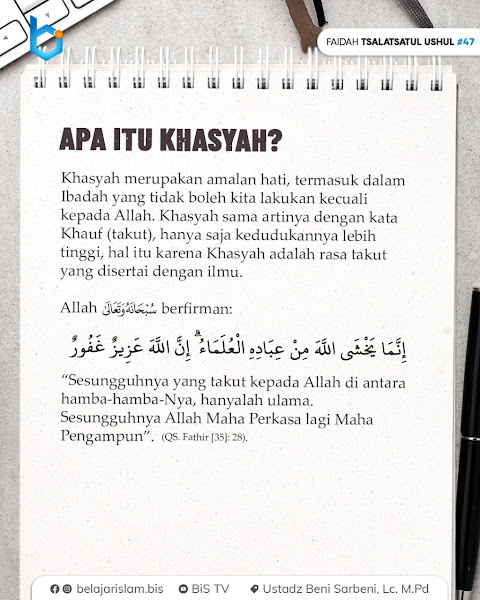 FAIDAH TSALATSATUL USHUL #47
APA ITU KHASYAH?
Khasyah merupakan amalan hati, termasuk dalam
Ibadah yang tidak boleh kita lakukan kecuali
kepada Allah. Khasyah sama artinya dengan kata
Khauf (takut), hanya saja kedudukannya lebih
tinggi, hal itu karena Khasyah adalah rasa takut
yang disertai dengan ilmu.
Allah سُبْحَانَهُ وَتَعَالَى berfirman:
إِنَّمَا يَخْشَى اللَّهَ مِنْ عِبَادِهِ الْعُلَمَاءُ ۗ إِنَّ اللَّهَ عَزِيزٌ غَفُورٌ
“Sesungguhnya yang takut kepada Allah di antara
hamba-hamba-Nya, hanyalah ulama.
Sesungguhnya Allah Maha Perkasa lagi Maha
Pengampun”. (QS. Fathir [35]: 28).
belajarislam.bis BiS TV Ustadz Beni Sarbeni, Lc. M.Pd